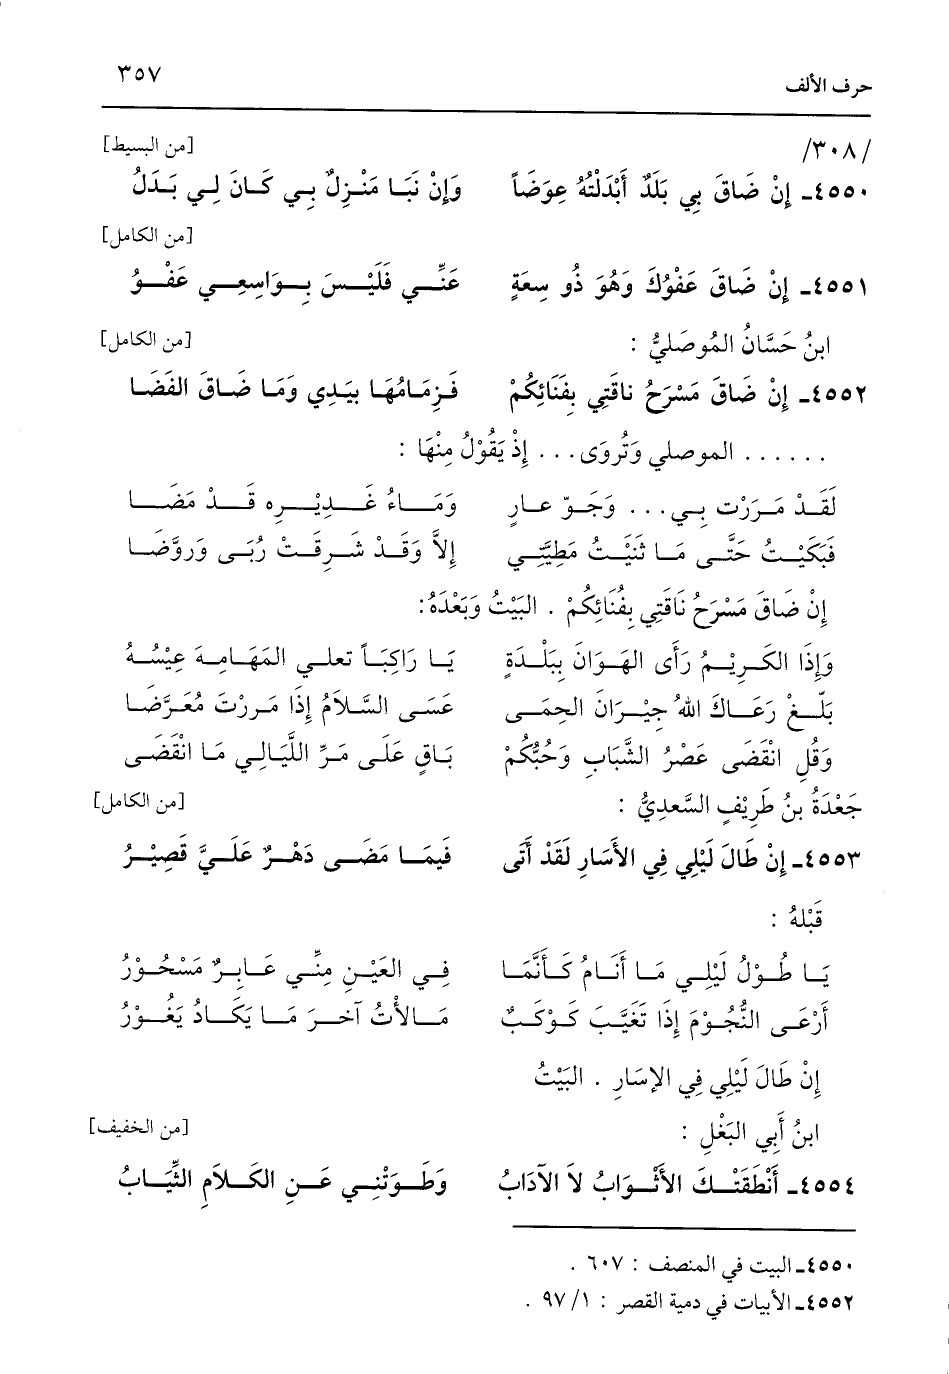 حرف الألف ٣٥٧
/٣٠٨/ [من البسيط]
٤٥٥٠ـ إِنْ ضَاقَ بِي بَلَدٌ أَبْدَلْتُهُ عِوَضَاً وَإِنْ نَبَا مَنْزِلٌ بِي كَانَ لِي بَدَلُ
[من الكامل]
٤٥٥١ـ إِنْ ضَاقَ عَفْوُكَ وَهُوَ ذُو سِعَةٍ عَنِّي فَلَيْسَ بِوَاسِعِي عَفْوُ
ابنُ حَسَّانُ المُوصَليُّ : [من الكامل]
٤٥٥٢ـ إِنْ ضَاقَ مَسْرَحُ ناقَتِي بِفَنَائِكُمْ فَزِمَامُهَا بيَدِي وَمَا ضَاقَ الفَضَا
...... الموصلي وَتُروَى... إِذْ يَقُوْلُ مِنْهَا :
لَقَدْ مَرَرْت بِي... وَجَوّ عارٍ وَمَاءُ غَدِيْرِه قَدْ مَضَا
فَبَكَيْتُ حَتَّى مَا ثَنَيْتُ مَطِيَّتِي إِلاَّ وَقَدْ شَرِقَتْ رُبَى وَرَوَّضَا
إِنْ ضَاقَ مَسْرَحُ نَاقَتِي بِفُنَائِكُمْ . البَيْتُ وَبَعْدَهُ:
وَإِذَا الكَرِيْمُ رَأَى الهَوَانَ بِبَلْدَةٍ يَا رَاكِبَاً تعلي المَهَامِهَ عِيْسُهُ
بَلّغْ رَعَاكَ اللهُ جِيْرَانَ الحِمَى عَسَى السَّلاَمُ إِذَا مَررْتَ مُعَرَّضَا
وَقُلِ انْقَضَى عَصْرُ الشَّبَابِ وَحُبُّكُمْ بَاقٍ عَلَى مَرِّ اللَّيَالِي مَا انْقَضَى
جَعْدَةُ بنُ طَرِيْفٍ السَّعدِيُّ : [من الكامل]
٤٥٥٣ـ إِنْ طَالَ لَيْلِي فِي الأَسَارِ لَقَدْ أَتَى فَيِمَا مَضَى دَهْرٌ عَلَيَّ قَصِيْرُ
قَبْلهُ :
يَا طُوْلُ لَيْلِي مَا أَنَامُ كَأَنَّمَا فِي العَيْنِ مِنِّي عَابِرٌ مَسْحُوْرُ
أَرْعَى النُّجُوْمَ إِذَا تَغَيَّبَ كَوْكَبٌ مَالأْتُ آخرَ مَا يَكَادُ يَغُوْرُ
إِنْ طَالَ لَيْلِي فِي الإسَارِ . البَيْتُ
ابنُ أَبِي البَغْلِ : [من الخفيف]
٤٥٥٤ـ أَنْطَقَتْكَ الأَثْوَابُ لاَ الآدَابُ وَطَوَتْنِي عَنِ الكَلاَمِ الثِّيَابُ
٤٥٥٠ـ البيت في المنصف : ٦٠٧ .
٤٥٥٢ـ الأبيات في دمية القصر : ٩٧/١ .